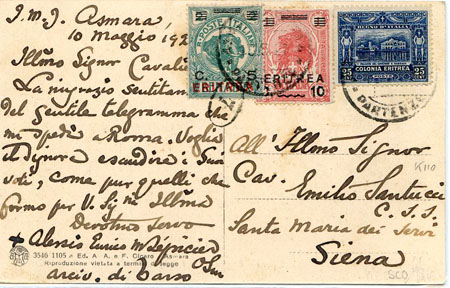 J. M. J. Asmara,
10 Maggio 192
Illmo Signor Cavali
La ringrazio sentitam
del gentile telegramma che
mi spedì a Roma. Voglia
il Signore esaudire i Suoi
voti, come pur quelli che
formo per V. S. Illma
Devotmo servo
+ Alessio Enrico M. Lépicier
O.S.M.
arciv. di Tarso
3546 1105 - Ed. A. A. e F. Cicero - Asmara
Riproduzione vietata a termini di legge
POSTE ITALIANE
C. 5
ERITREA
ERITREA
10
REGNO D'ITALIA
25 25
COLONIA ERITREA
POSTE
PARTENZ
All' Illmo Signor
K110
Cav. Emilio Santucci
C. S. S.
Santa Maria dei Servi
Siena
SCO